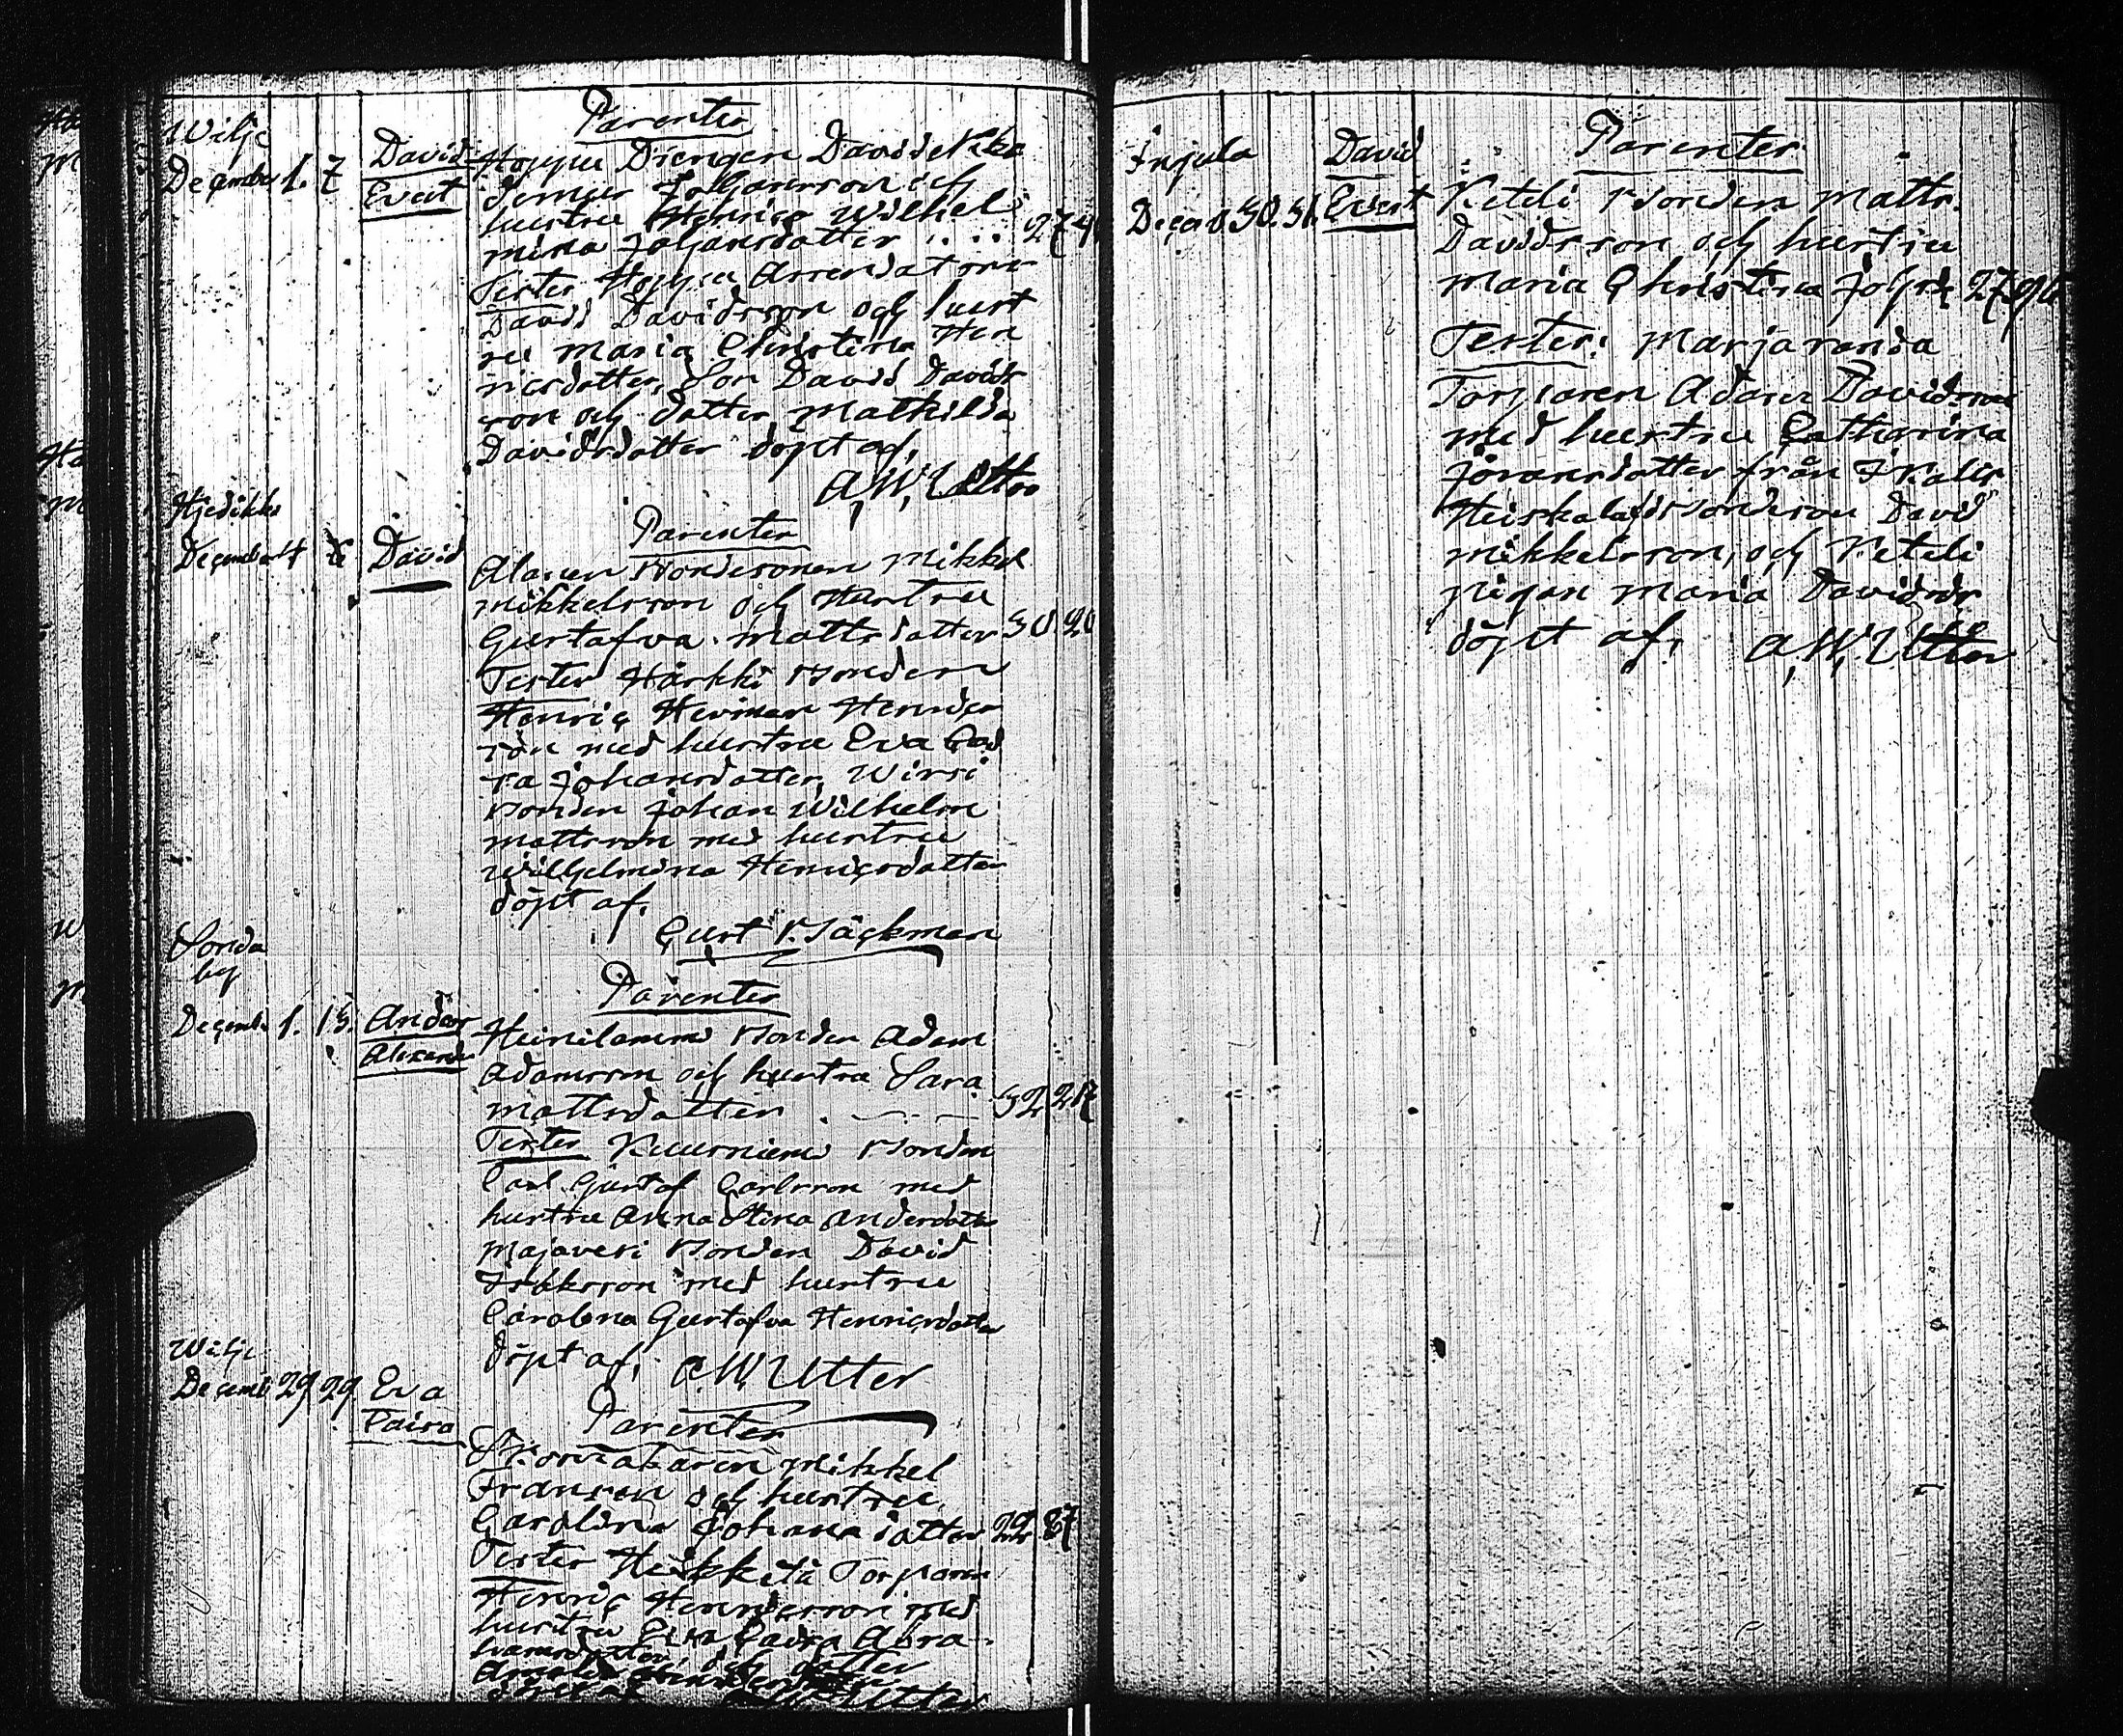 Wilje
Decembr 1. 7
David
Evert
Parenter
Hoppu Drengen David Niko
demus Johansson och
hustru Wilhel
mina Johansdotter . . . 27 4
Tester Hoppu Arrendatorn
David Davidsson och hust
ru Maria Christina Hen
ricsdotter, Son David Davids
son och dotter Mathilda
Davidsdotter döpt af,
A. W. Utter
Hjedikko
December 4
David
Parenter
Alanen Bondesonen Mikkel
Mikkelsson och Hustru
Gustafva Mattsdotter 30. 20
Tester Härkki Bonden
Henric Herman Henrics
son med hustru Eva Cai
sa Johansdotter, Wirsi
Bonden Johan Wilhelm
Mattsson med hustru
Wilhelmina Henricsdotter
döpt af,
Gust Bäckman
Sonda
by
Decembr 1. 13.
Anders
Alexander
Parenter
Heinilammi Bonden Adam
Adamsson och hustru Sara
Mattsdotter . . . 32 217
Tester Kuurniemi Bonden
Carl Gustaf Carlsson med
hustru Anna Stina Andersdotter
Majavesi Bonden David
Isaksson med hustru
Carolina Gustafva Henricsdotter
döpt af, A. W. Utter
Wilje
Decemb 29 29
Eva
Caisa
Parenter
Skomakaren Mikkel
Fransson och hustru
Carolina Johansdotter 22. 87
Tester Heikkilä Torparen
Henric Henricsson med
hustru Eva Caisa Abra
hamsdotter, och dotter
Amalia
A. W. Utter
Injula
Decemb 30. 31.
David
Evert
Parenter
Keteli Bonden Matts
Davidsson och hustru
Maria Christina Johsdr 27. 96
Tester: Marjaranda
Torparen Adam Davidsson
med hustru Catharina
Jöransdotter från Ikalis
Heiskala Bondeson David
Mikkelsson, och Keteli
pigan Maria Davidsdr
döpt af, A. W. Utter